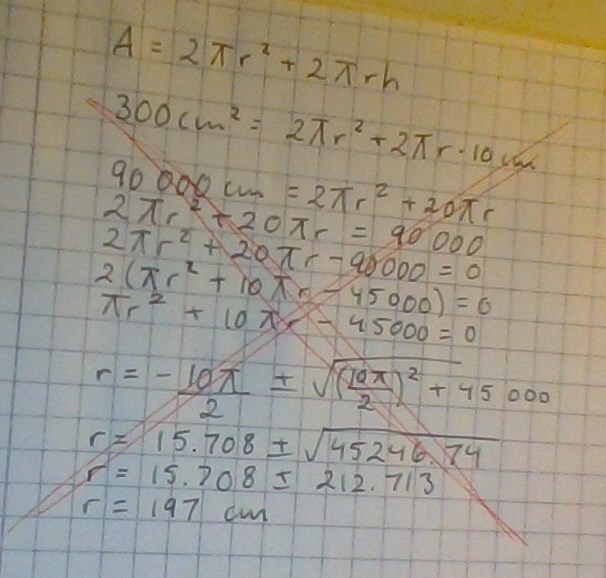 A = 2πr² + 2πrh
300 cm² = 2πr² + 2πr · 10 cm
90 000 cm = 2πr² + 20πr
2πr² + 20πr = 90 000
2πr² + 20πr - 90000 = 0
2(πr² + 10πr - 45000) = 0
πr² + 10πr - 45000 = 0
r = - 10π/2 ± √(10π/2)² + 45 000
r = 15.708 ± √45246.74
r = 15.708 ± 212.713
r = 197 cm